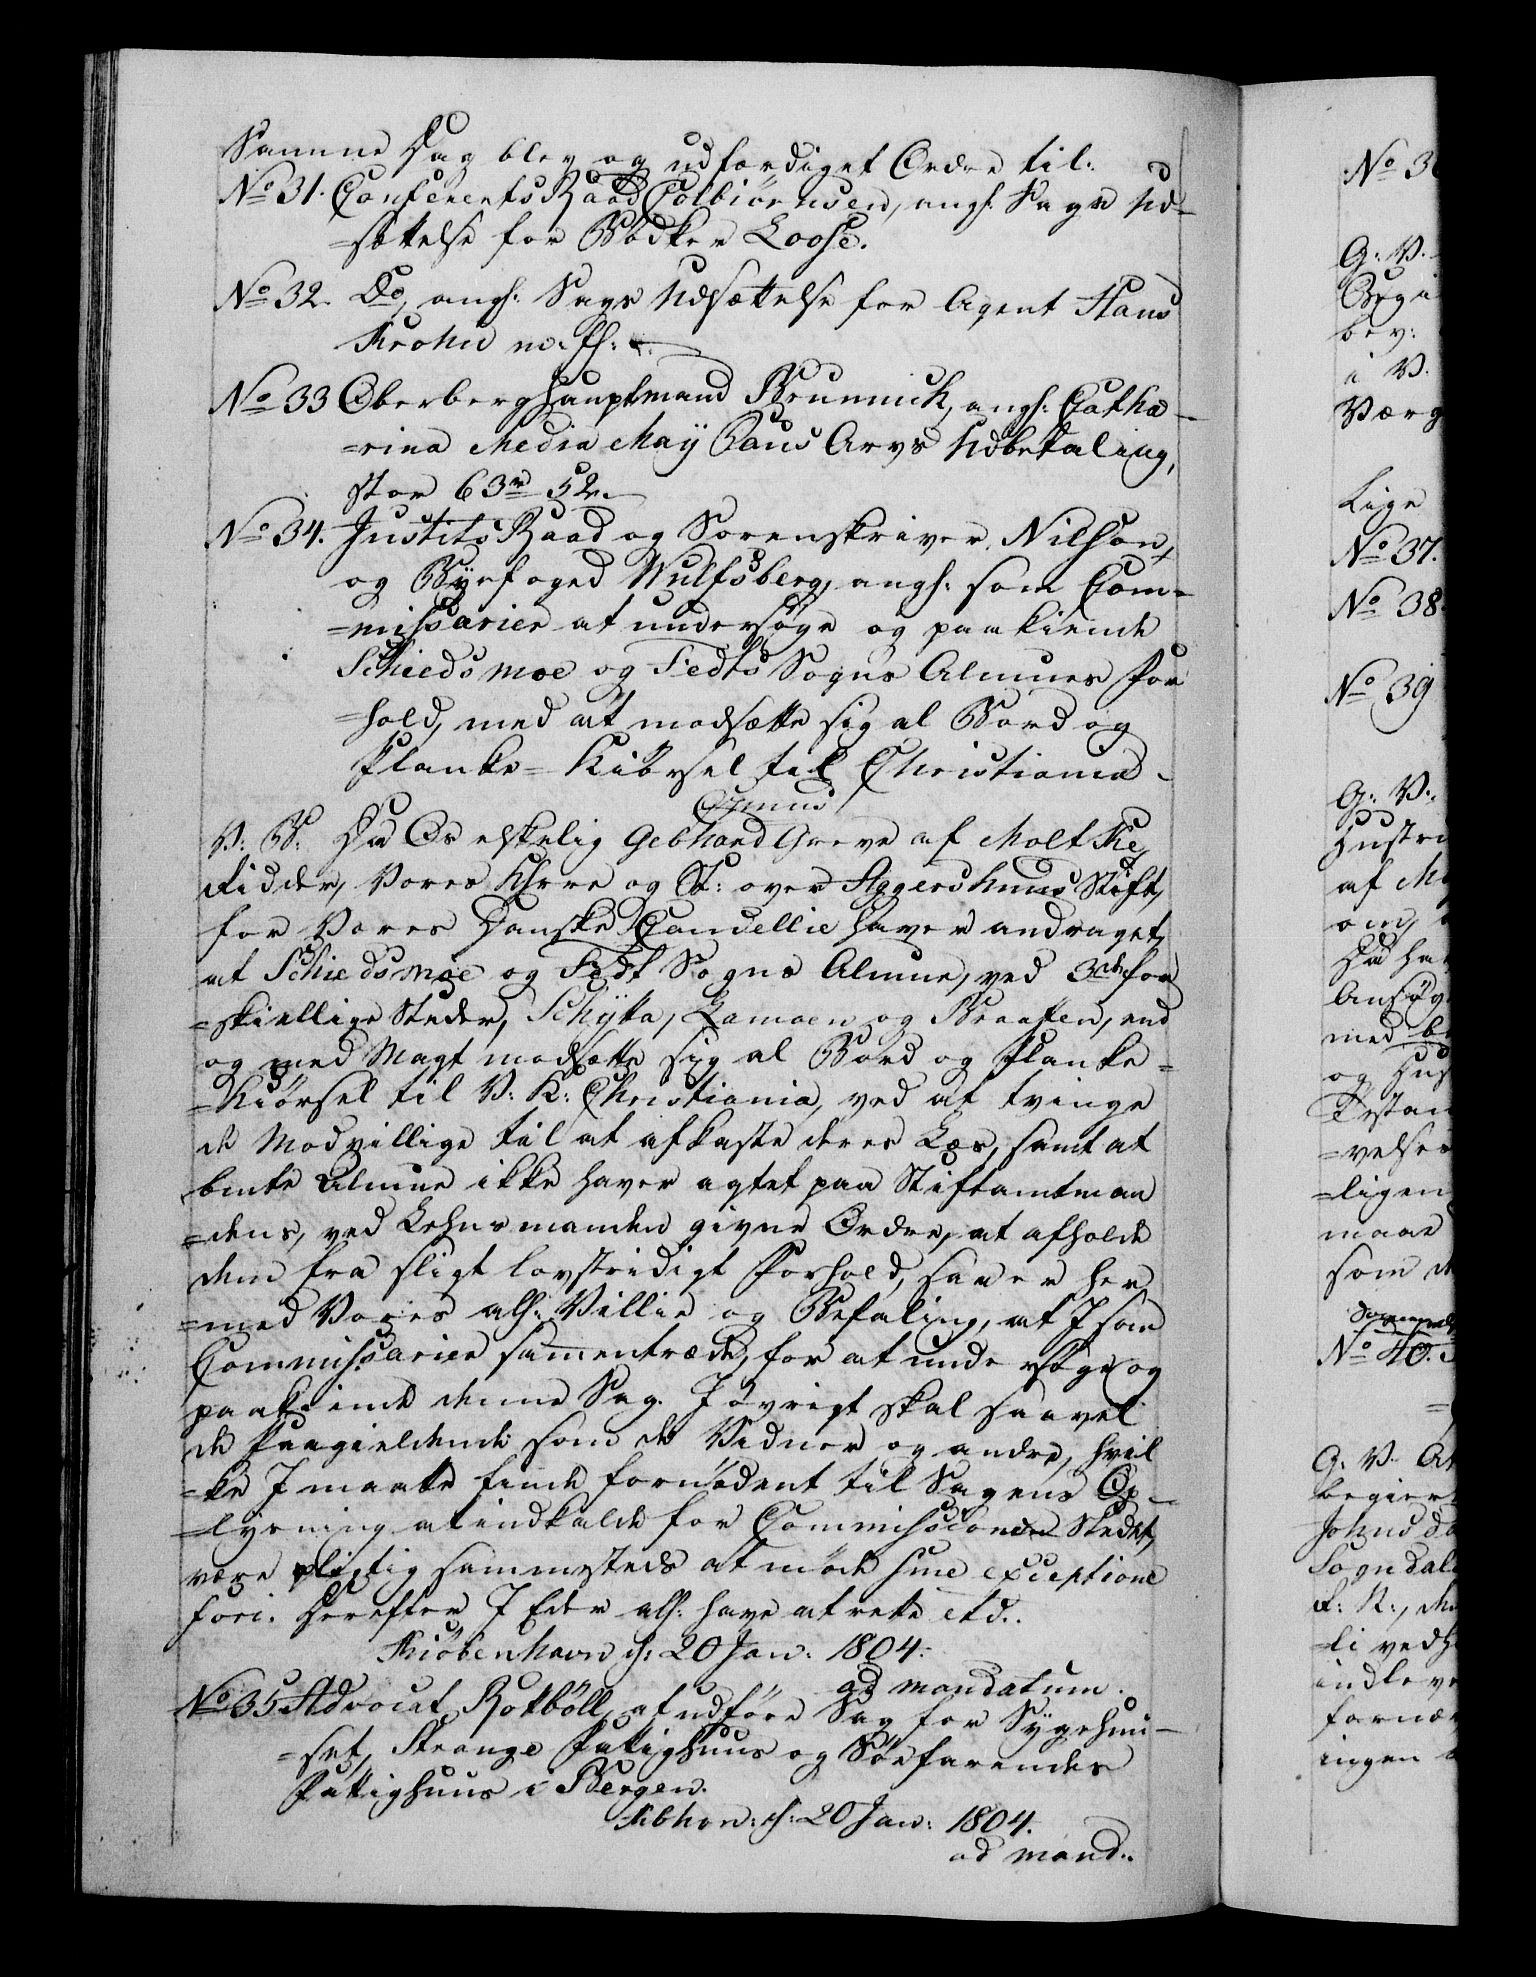 Samme Dag blev og udfærdiget Ordre til:
No 31. Conferents Raad Colbiörnsen, angl. Sags Ud-
=sættelse for Bödker Loose.
No 32. Do, angl: Sags Udsættelse for Agent Hans
Krohn m: fl:
No 33 Oberberghauptmand Brunnich, angl: Catha-
=rina Media Maÿ Caus Arvs Udbetaling,
stor 63 rd 52 s.
No 34. Justits Raad og Sorenskriver Nilson,
og Byefoged Wulfsberg, angl: som Com=
=missarier at undersøge og paakiende
Schiedsmoe og Fedts Sogns Almues For
=hold, med at modsætte sig al Bord og
Planke= Kiörsel til Christiania.
Commis
V: G: Da Os elskelig Gebhard Greve af Moltke,
Ridder, Vores Khrre og St: over Aggershuus Stift,
for Vores Danske Cancellie haver andraget,
at Schiedsmoe og Fedt Sogns Almue, ved 3de for
=skiellige Steder, Schÿtta, Lamoen og Braaten, end
og med Magt modsætte sig al Bord og Planke=
=Kiörsel til V: K: Christiania, ved at tvinge
de Modvillige til at afkaste deres Læs, samt at
bemte Almue ikke haver agtet paa Stiftamtman
=dens, ved Lehnsmanden givne Ordre, at afholde
dem fra sligt lovstridigt Forhold, saa er her
=med Vores all: Villie og Befaling, at I som
Commissarier sammentræde, for at undersøge og
paakiende denne Sag. I övrigt skal saavel
de Paagieldende som de Vidner og andre, hvil
=ke I maatte finde fornödent til Sagens Op-
=lysning at indkalde for Commissionen Stedet,
være pligtig sammesteds at møde sine exceptione
fori. Herefter I Eder all: have at rette etc.
Kiöbenhavn d: 20 Jan: 1804.
ad mandatum.
No 35 Advocat Rotböll, at udföre Sag for Sÿgehuu-
=set, Strange Fattighuus og Söefarendes
Fattighuus i Bergen.
Kbhvn: d: 20 Jan: 1804.
ad mand:.
No 3
G: V:
bev:
i V.
Værg
Lige
No 37.
No 38.
No 39
G: V:
Hustru
af M
om,
Da ha
Ansøg
med
og Hus
Testam
=velse
=ligen
maae
som
No 40.
G: V: At
begier
Johnsda
Sogndal
=li vedh
indleve
fornær
ingen